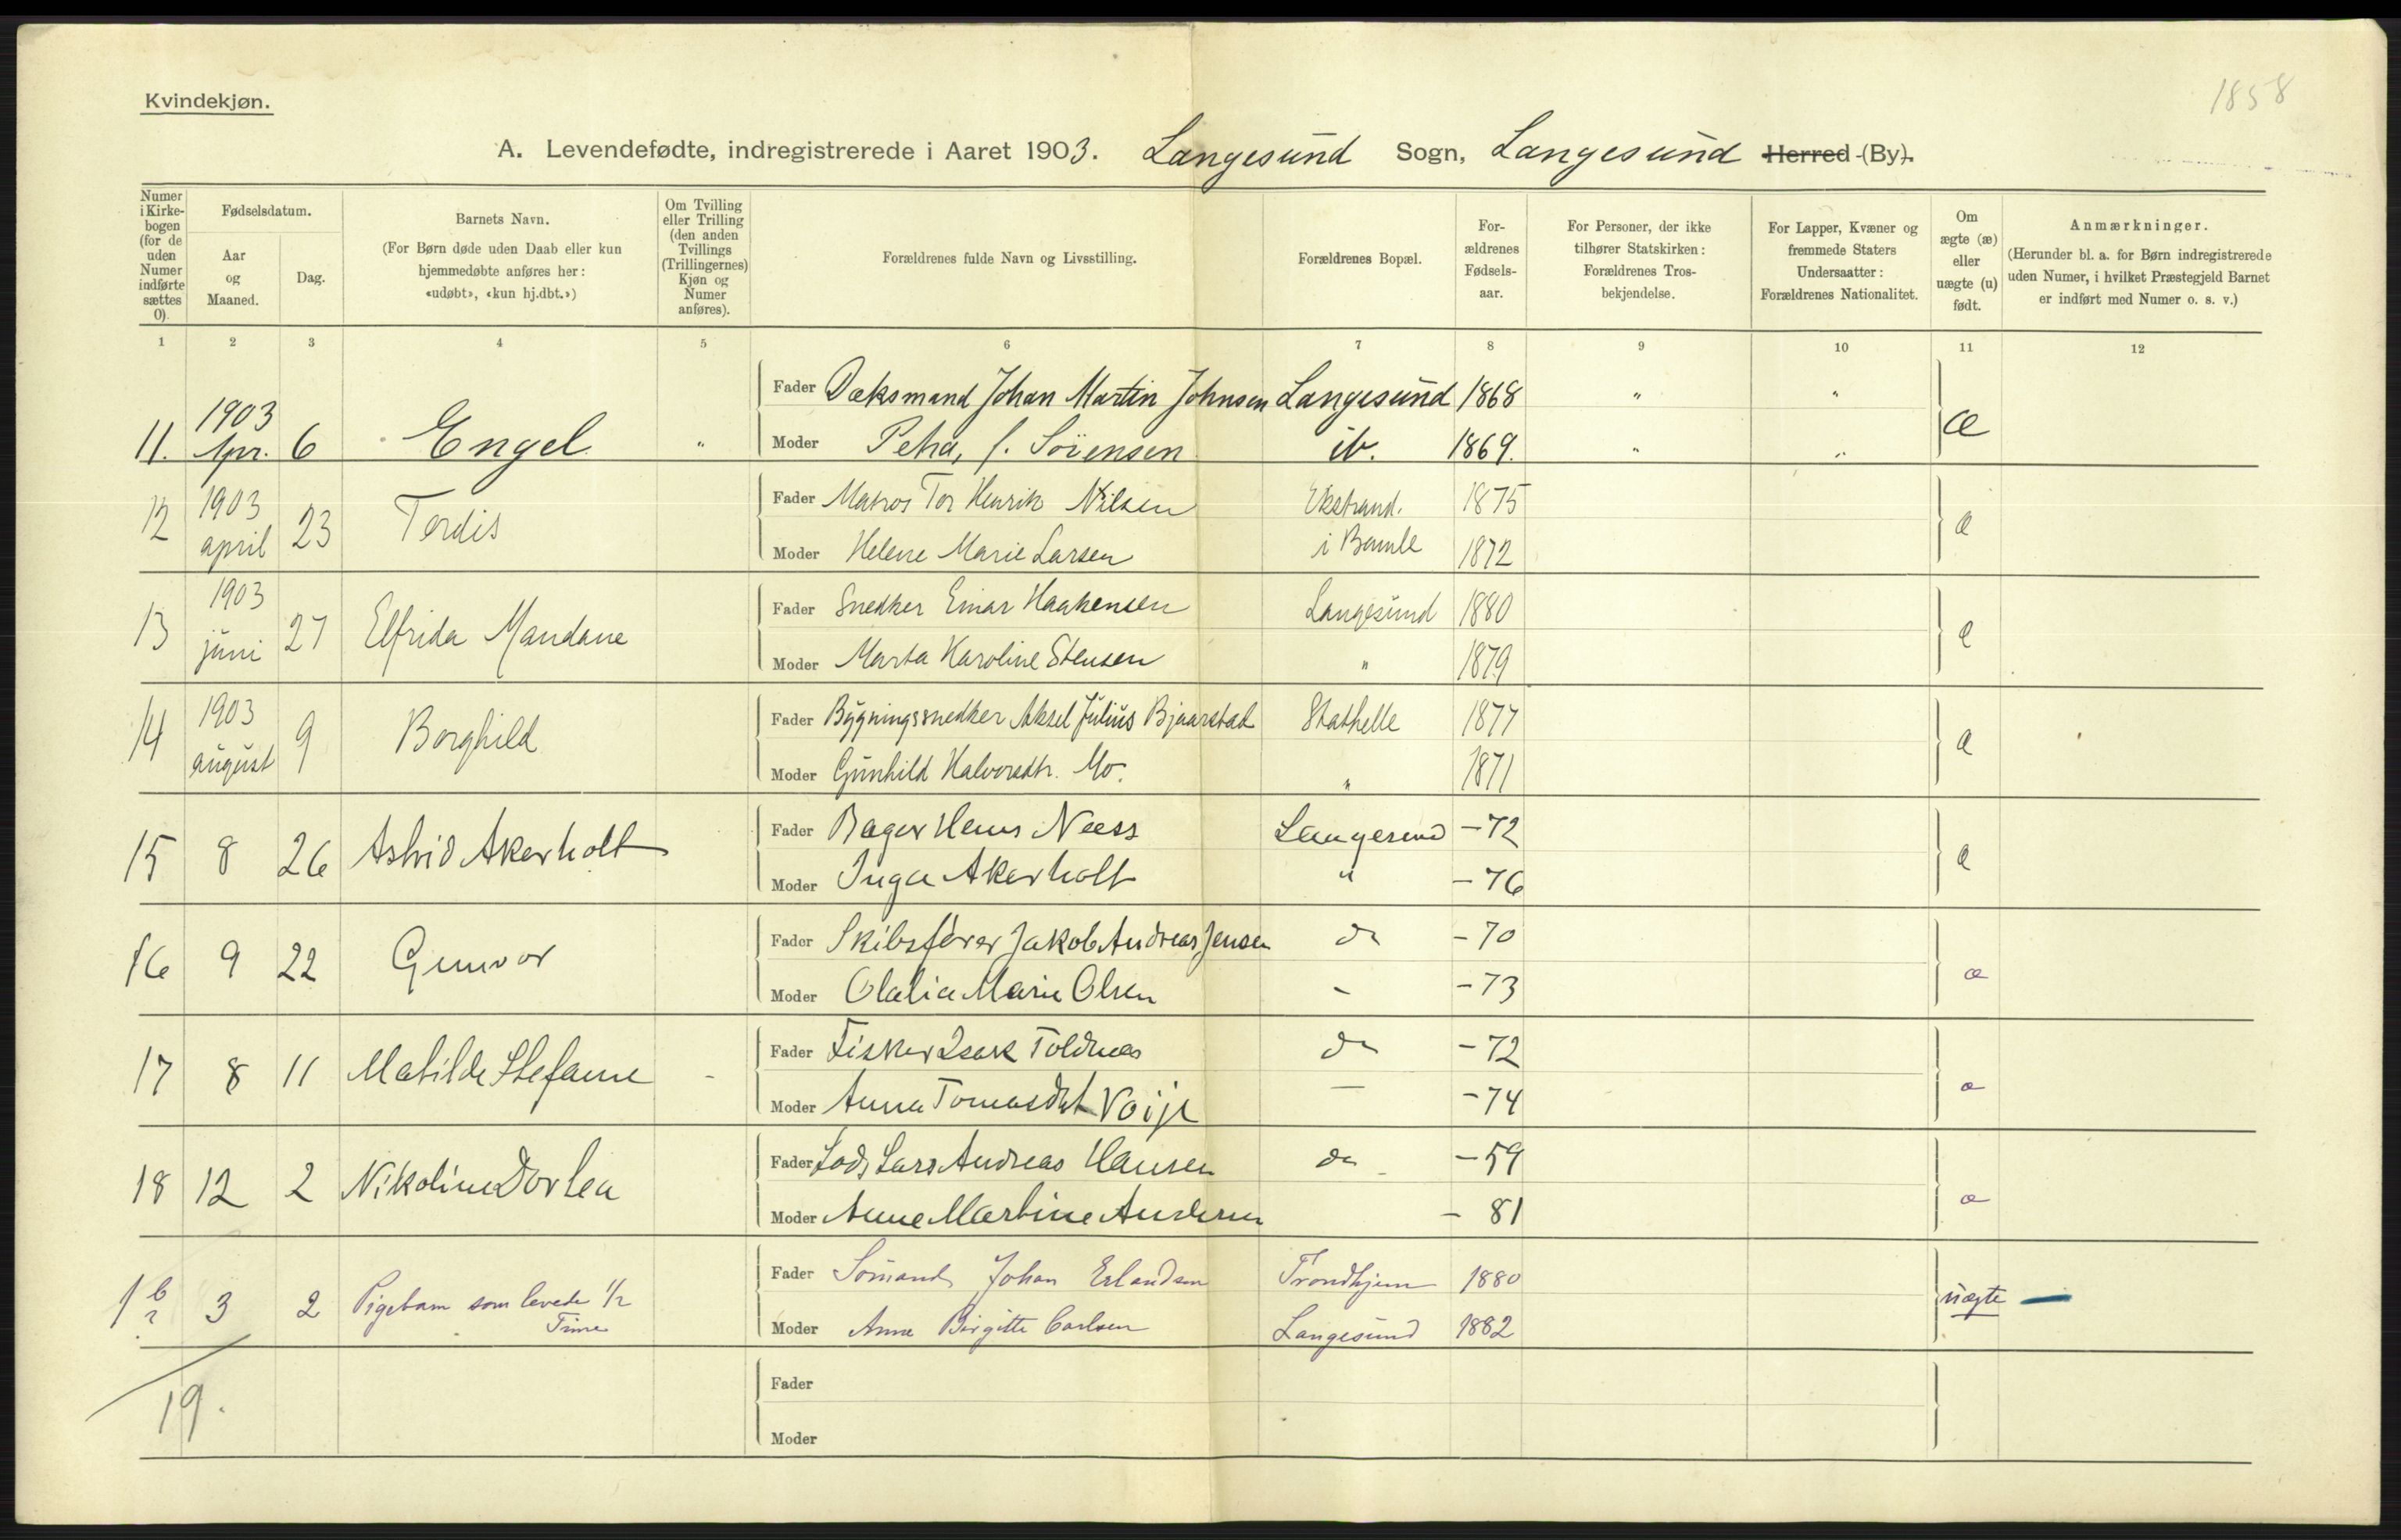 Kvindekjøn.
1858
A. Levendefødte, indregistrerede i Aaret 1903. Langesund Sogn, Langesund Herred (By).
Numer i Kirkebogen (for de uden Numer indførte sættes 0).
Fødselsdatum.
Aar og Maaned.
Dag.
Barnets Navn.
(For Børn døde uden Daab eller kun hjemmedøbte anføres her: «udøbt», «kun hj.dbt.»)
Om Tvilling eller Trilling (den anden Tvillings (Trillingernes) Kjøn og Numer anføres).
Forældrenes fulde Navn og Livsstilling.
Forældrenes Bopæl.
Forældrenes Fødselsaar.
For Personer, der ikke tilhører Statskirken: Forældrenes Trosbekjendelse.
For Lapper, Kvæner og fremmede Staters Undersaatter: Forældrenes Nationalitet.
Om ægte (æ) eller uægte (u) født.
Anmærkninger.
(Herunder bl. a. for Børn indregistrerede uden Numer, i hvilket Præstegjeld Barnet er indført med Numer o. s. v.)
1 2 3 4 5 6 7 8 9 10 11 12
Fader Dæksmand Johan Martin Johnsen Langesund 1868 " "
11. 1903 Apr. 6 Engel " Moder Petra, f. Sörensen ib. 1869. " " æ
Fader Matros Tor Henrik Nilsen Ekstrand. 1875
12 1903 april 23 Tordis Moder Helene Marie Larsen i Bamle 1872 æ
Fader Snedker Einar Haakensen Langesund 1880
13 1903 juni 27 Elfrida Mandane Moder Marta Karoline Stensen " 1879 æ
Fader Bygningssnedker Aksel Julius Bjaarstad Stathelle 1877
14 1903 august 9 Borghild Moder Gunhild Halvorsdtr. Mo. " 1871 æ
Fader Bager Hans Næss Langesund -72
15 8 26 Astrid Akerholt Moder Inga Akerholt " -76 æ
Fader Skibsfører Jakob Andreas Jensen do -70
16 9 22 Gunvor Moder Olalia Marie Olsen - -73 æ
Fader Fisker Isak Toldnes do -72
17 8 11 Matilde Stefanie - Moder Anna Tomasdat Voije — -74 æ
Fader Lods Lars Andreas Hansen do -59
18 12 2 Nikoline Dortea Moder Anne Martine Andersen - 81 æ
Fader Sömand Johan Erlandsen Trondhjem 1880
1 b 3 2 Pigebarn som levede 1/2 Time Moder Anna Birgitte Carlsen Langesund 1882 uægte —
Fader
19.
Moder